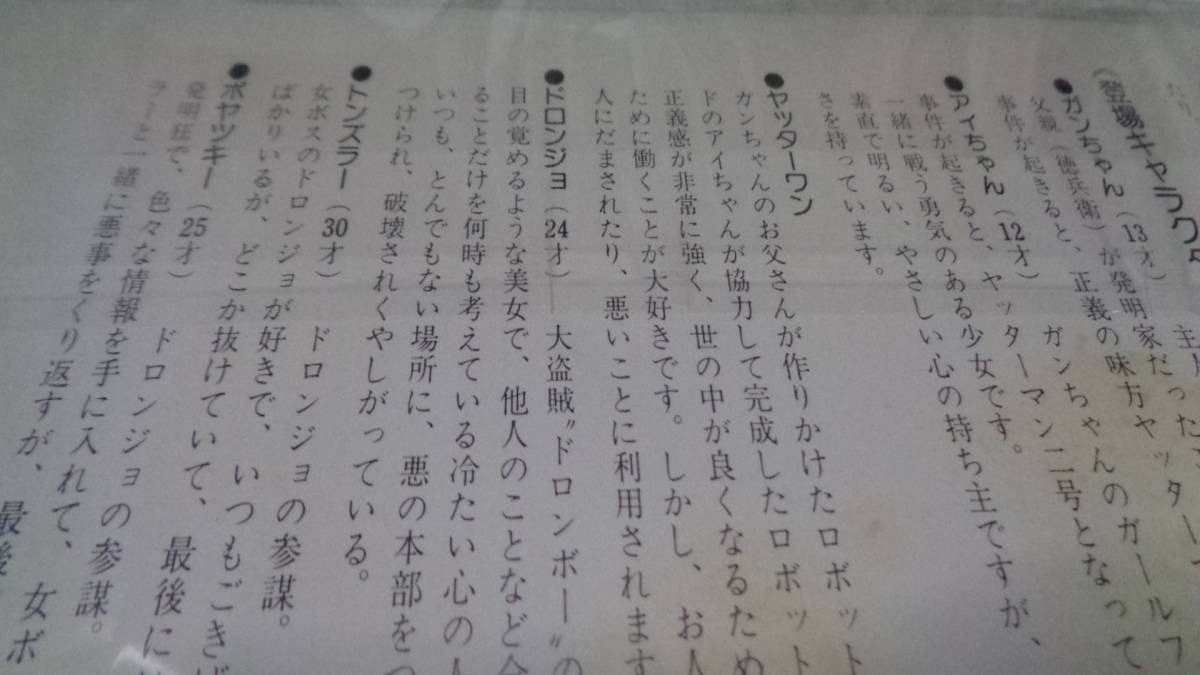 たり
（登場キャラク
●ガンちゃん（13才）
父親（徳兵衛）が発明家だった
事件が起きると、正義の味方ヤッター
●アイちゃん（12才） ガンちゃんのガールフ
事件が起きると、ヤッターマン二号となって
一緒に戦う勇気のある少女です。
素直で明るい、やさしい心の持ち主ですが、
さを持っています。
●ヤッターワン
ガンちゃんのお父さんが作りかけたロボット
ドのアイちゃんが協力して完成したロボット
正義感が非常に強く、世の中が良くなるため
ために働くことが大好きです。しかし、お人
人にだまされたり、悪いことに利用されます
●ドロンジョ（24才） 大盗賊〝ドロンボー〟の
目の覚めるような美女で、他人のことなど
ることだけを何時も考えている冷たい心の人
いつも、とんでもない場所に、悪の本部をつ
つけられ、破壊されくやしがっている。
●トンズラー（30才） ドロンジョの参謀。
女ボスのドロンジョが好きで、いつもごきげ
ばかりいるが、どこか抜けていて、最後に
●ボヤッキー（25才） ドロンジョの参謀。
発明狂で、色々な情報を手に入れて、女ボ
ラーと一緒に悪事をくり返すが、最後